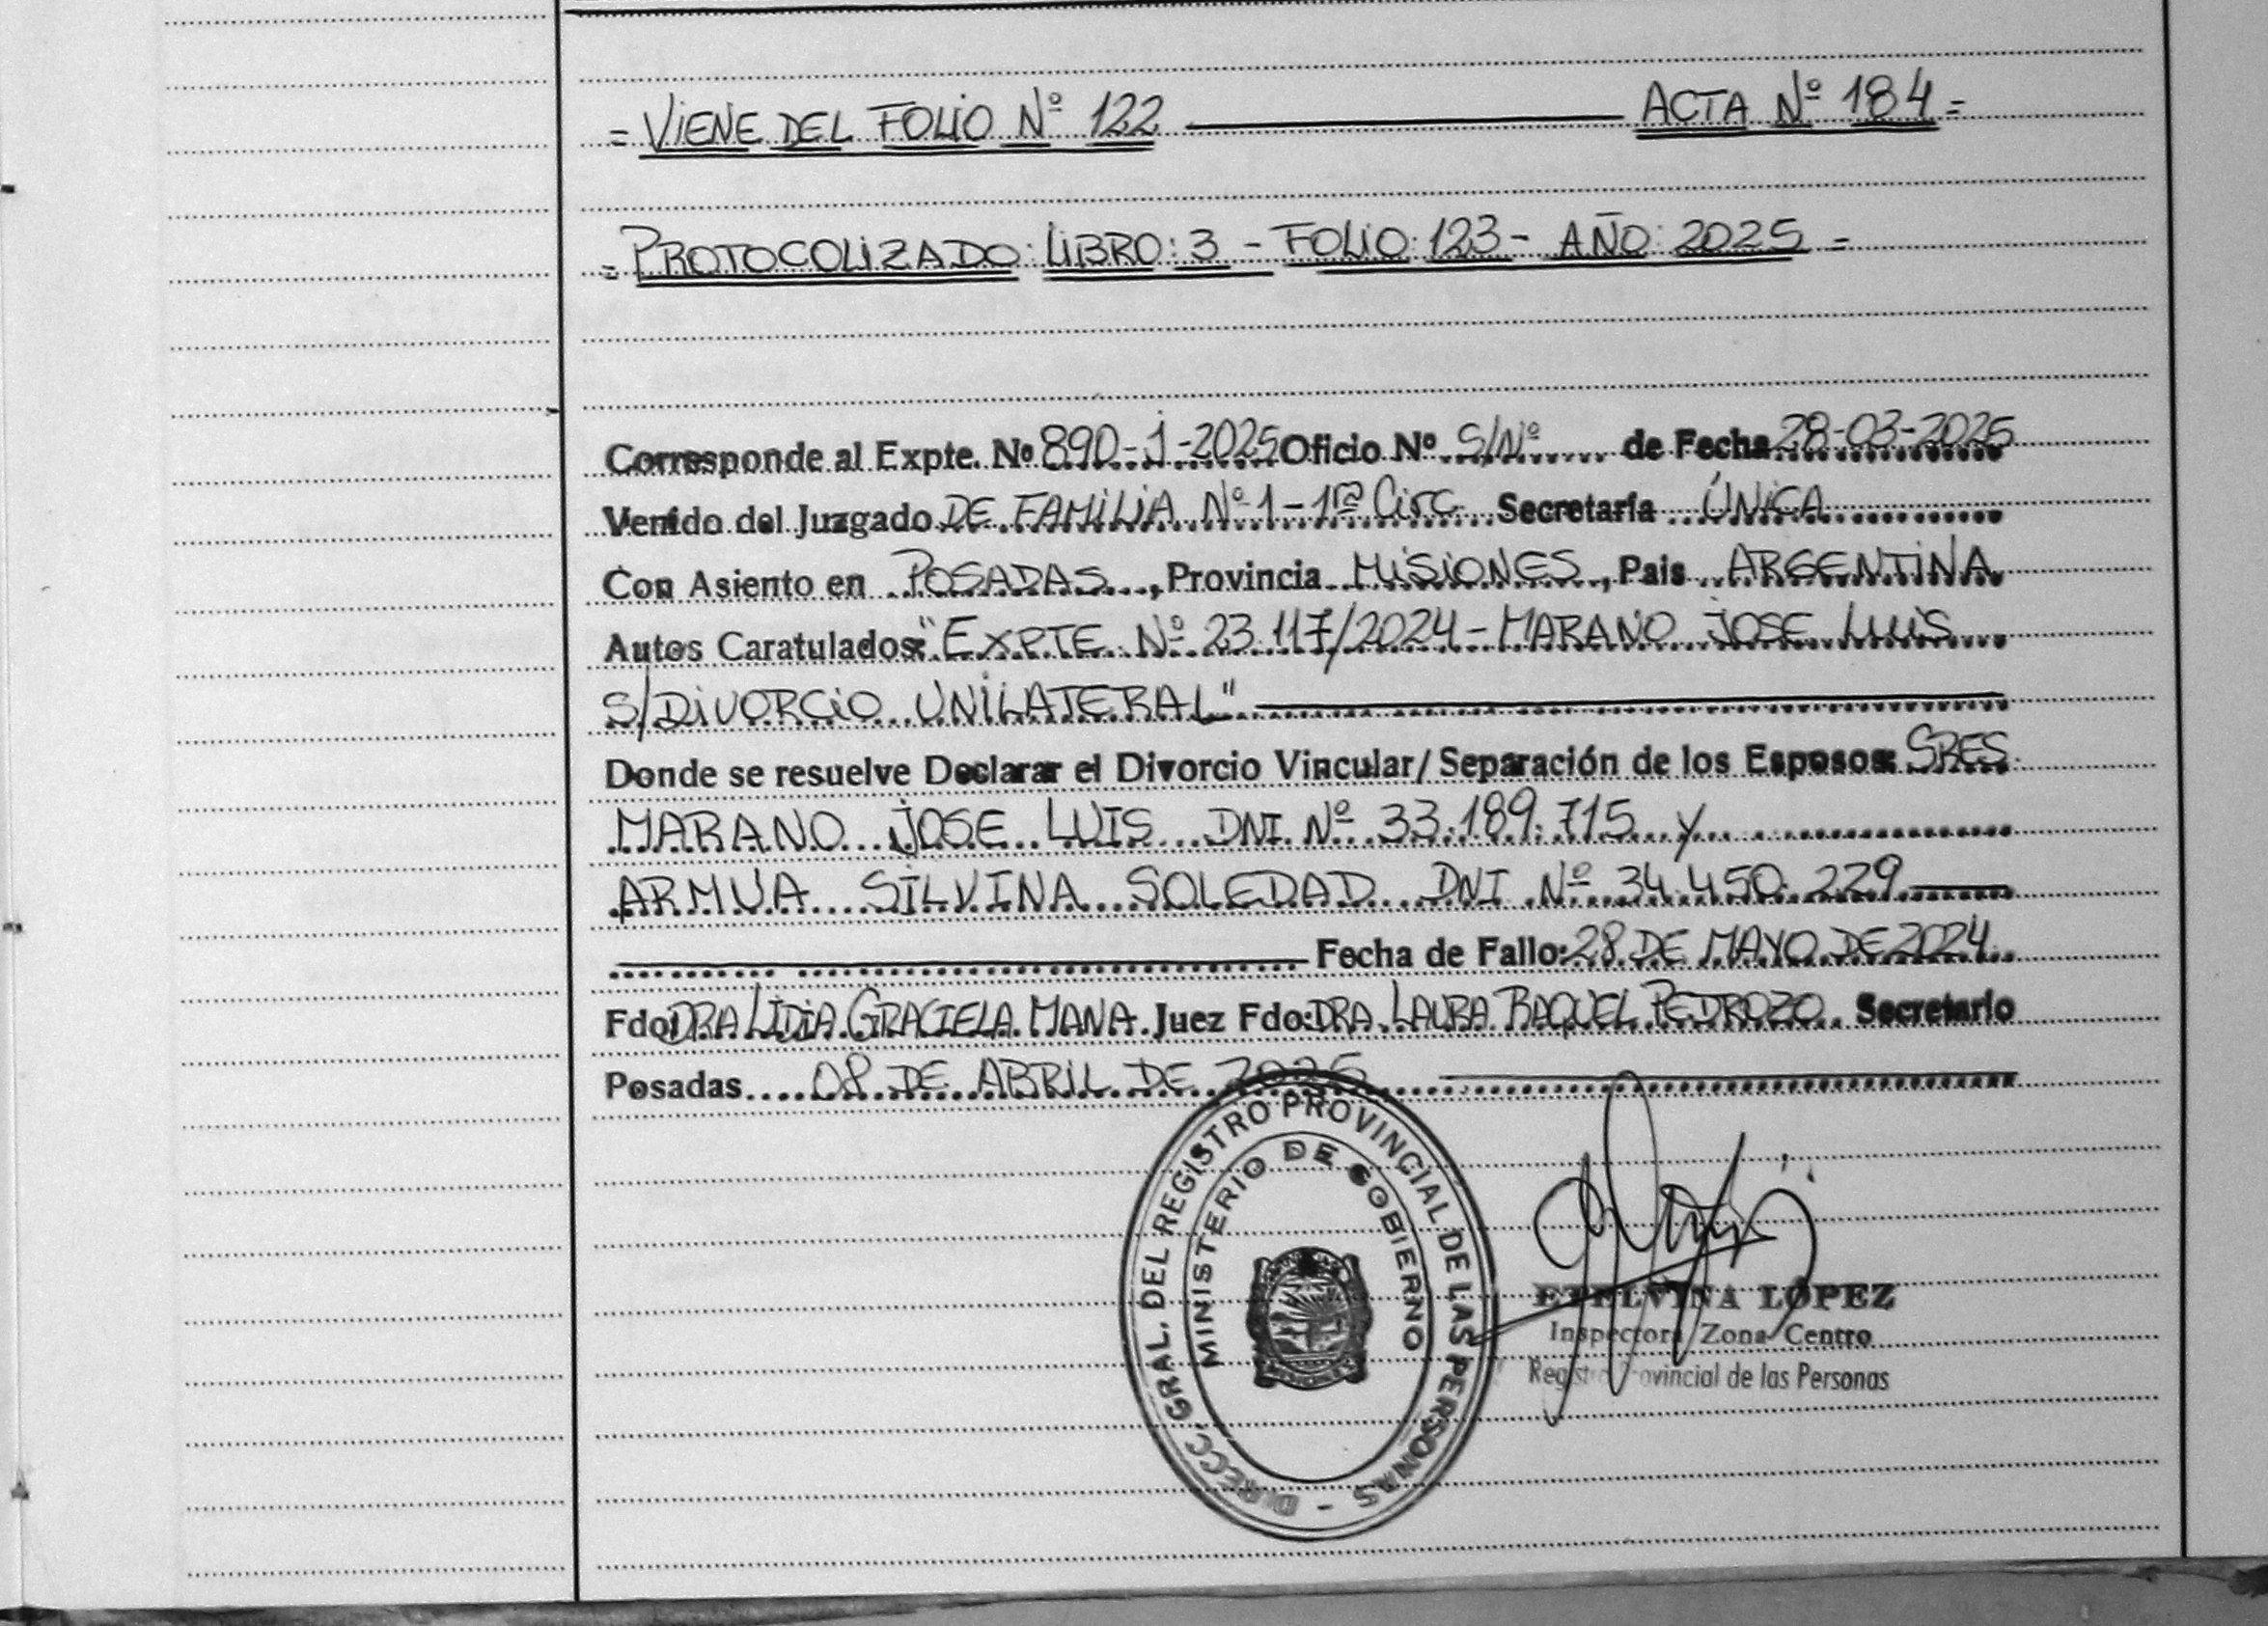 = VIENE DEL FOLIO Nº 122 ACTA Nº 184 =
= PROTOCOLIZADO: LIBRO: 3 - FOLIO: 123 - AÑO: 2025 =
Corresponde al Expte. Nº 890-J-2025 Oficio Nº S/Nº de Fecha 28-03-2025
Venido del Juzgado DE FAMILIA Nº 1 - 1ra Circ. Secretaría ÚNICA
Con Asiento en POSADAS, Provincia MISIONES, Pais ARGENTINA
Autos Caratulados: "EXPTE. Nº 23.117/2024 - MARANO JOSE LUIS
S/DIVORCIO UNILATERAL"
Donde se resuelve Declarar el Divorcio Vincular/Separación de los Esposos: SRES.
MARANO JOSE LUIS DNI Nº 33.189.715 Y
ARMUA SILVINA SOLEDAD DNI Nº 34.450.229
Fecha de Fallo: 28 DE MAYO DE 2024
Fdo: DRA LIDIA GRACIELA MANA Juez Fdo: DRA. LAURA RAQUEL PEDROZO Secretario
Posadas 08 DE ABRIL DE 2025
DIRECC. GRAL. DEL REGISTRO PROVINCIAL DE LAS PERSONAS -
MINISTERIO DE GOBIERNO
ETELVINA LOPEZ
Inspectora Zona Centro
Registro Provincial de las Personas